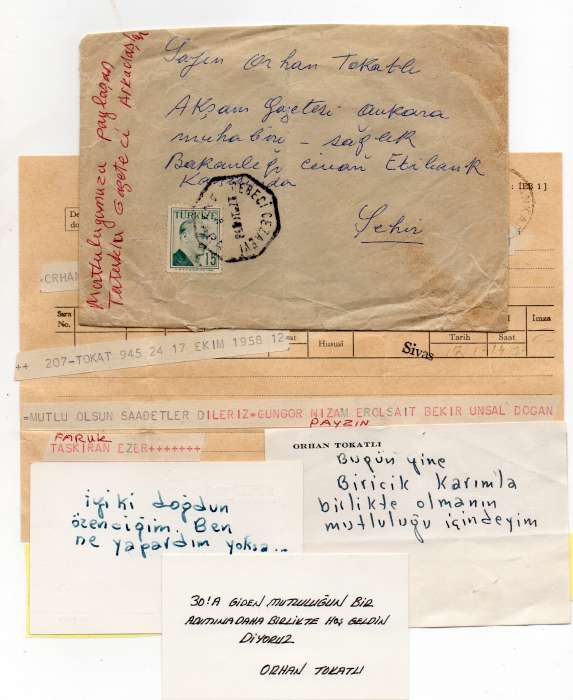 Sayın Orhan Tokatlı
Akşam Gazetesi ankara
muhabiri - sağlık
Bakanlığı civarı Etibank
Karşısında
Şehir
Mutluluğumuzu paylaşan
Tutuklu Gazeteci Arkadaşlar
CEBECİ CEZAEVİ
TÜRKİYE
15
: TEB 1 ]
ORHAN
Sıra
No.
Hususi
Sivas
Tarih
Saat
İmza
++ 207-TOKAT 945 24 17 EKIM 1958 12
=MUTLU OLSUN SAADETLER DILERIZ=GUNGOR NIZAM EROLSAIT BEKIR UNSAL DOGAN
FARUK
PAYZIN
TASKIRAN EZER+++++++
ORHAN TOKATLI
Bugün yine
Biricik Karımla
birlikte olmanın
mutluluğu içindeyim
iyi ki doğdun
özenciğim. Ben
ne yapardım yoksa...
30'A GİDEN MUTLULUĞUN BİR
ADIMINA DAHA BİRLİKTE HOŞ GELDİN
DİYORUZ
ORHAN TOKATLI